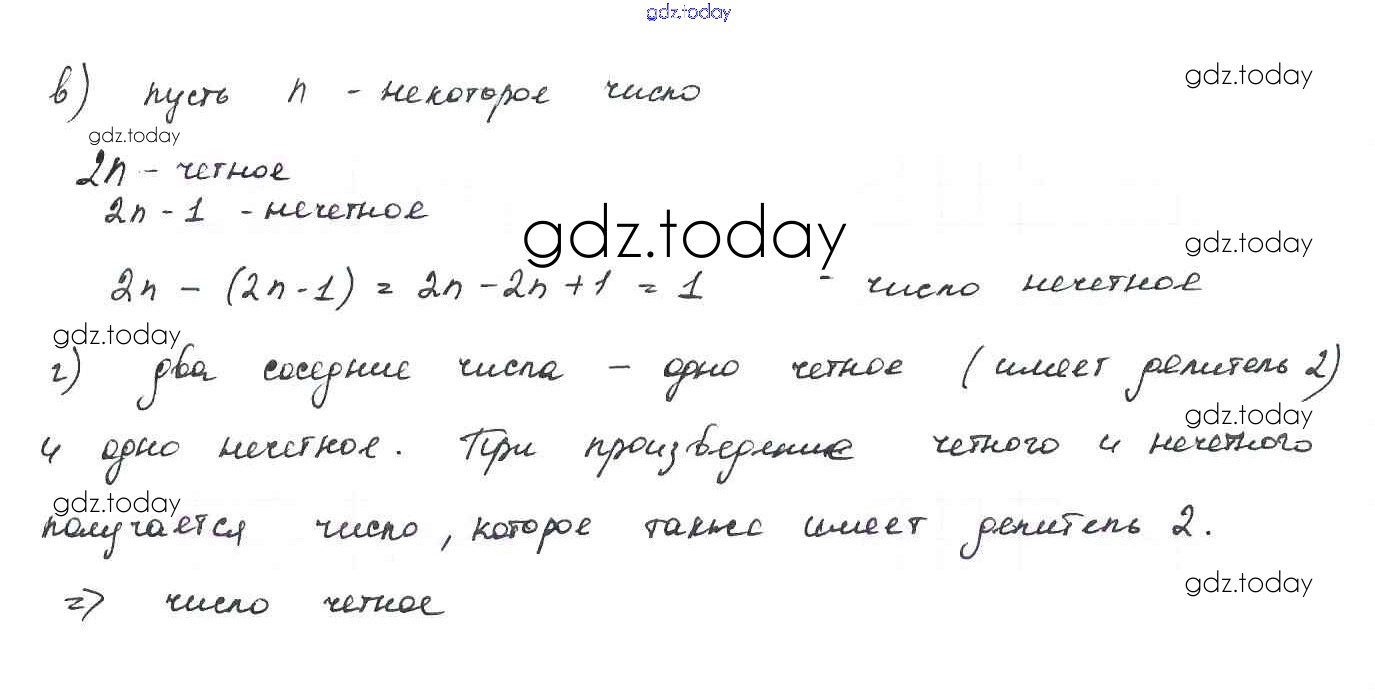 gdz.today
в) пусть n - некоторое число
gdz.today
gdz.today
2n - четное
2n - 1 - нечетное
gdz.today
gdz.today
2n - (2n - 1) = 2n - 2n + 1 = 1 - число нечетное
gdz.today
г) два соседние числа - одно четное (имеет делитель 2)
gdz.today
и одно нечетное. При произведение четного и нечетного
gdz.today
получается число, которое также имеет делитель 2.
gdz.today
=> число четное